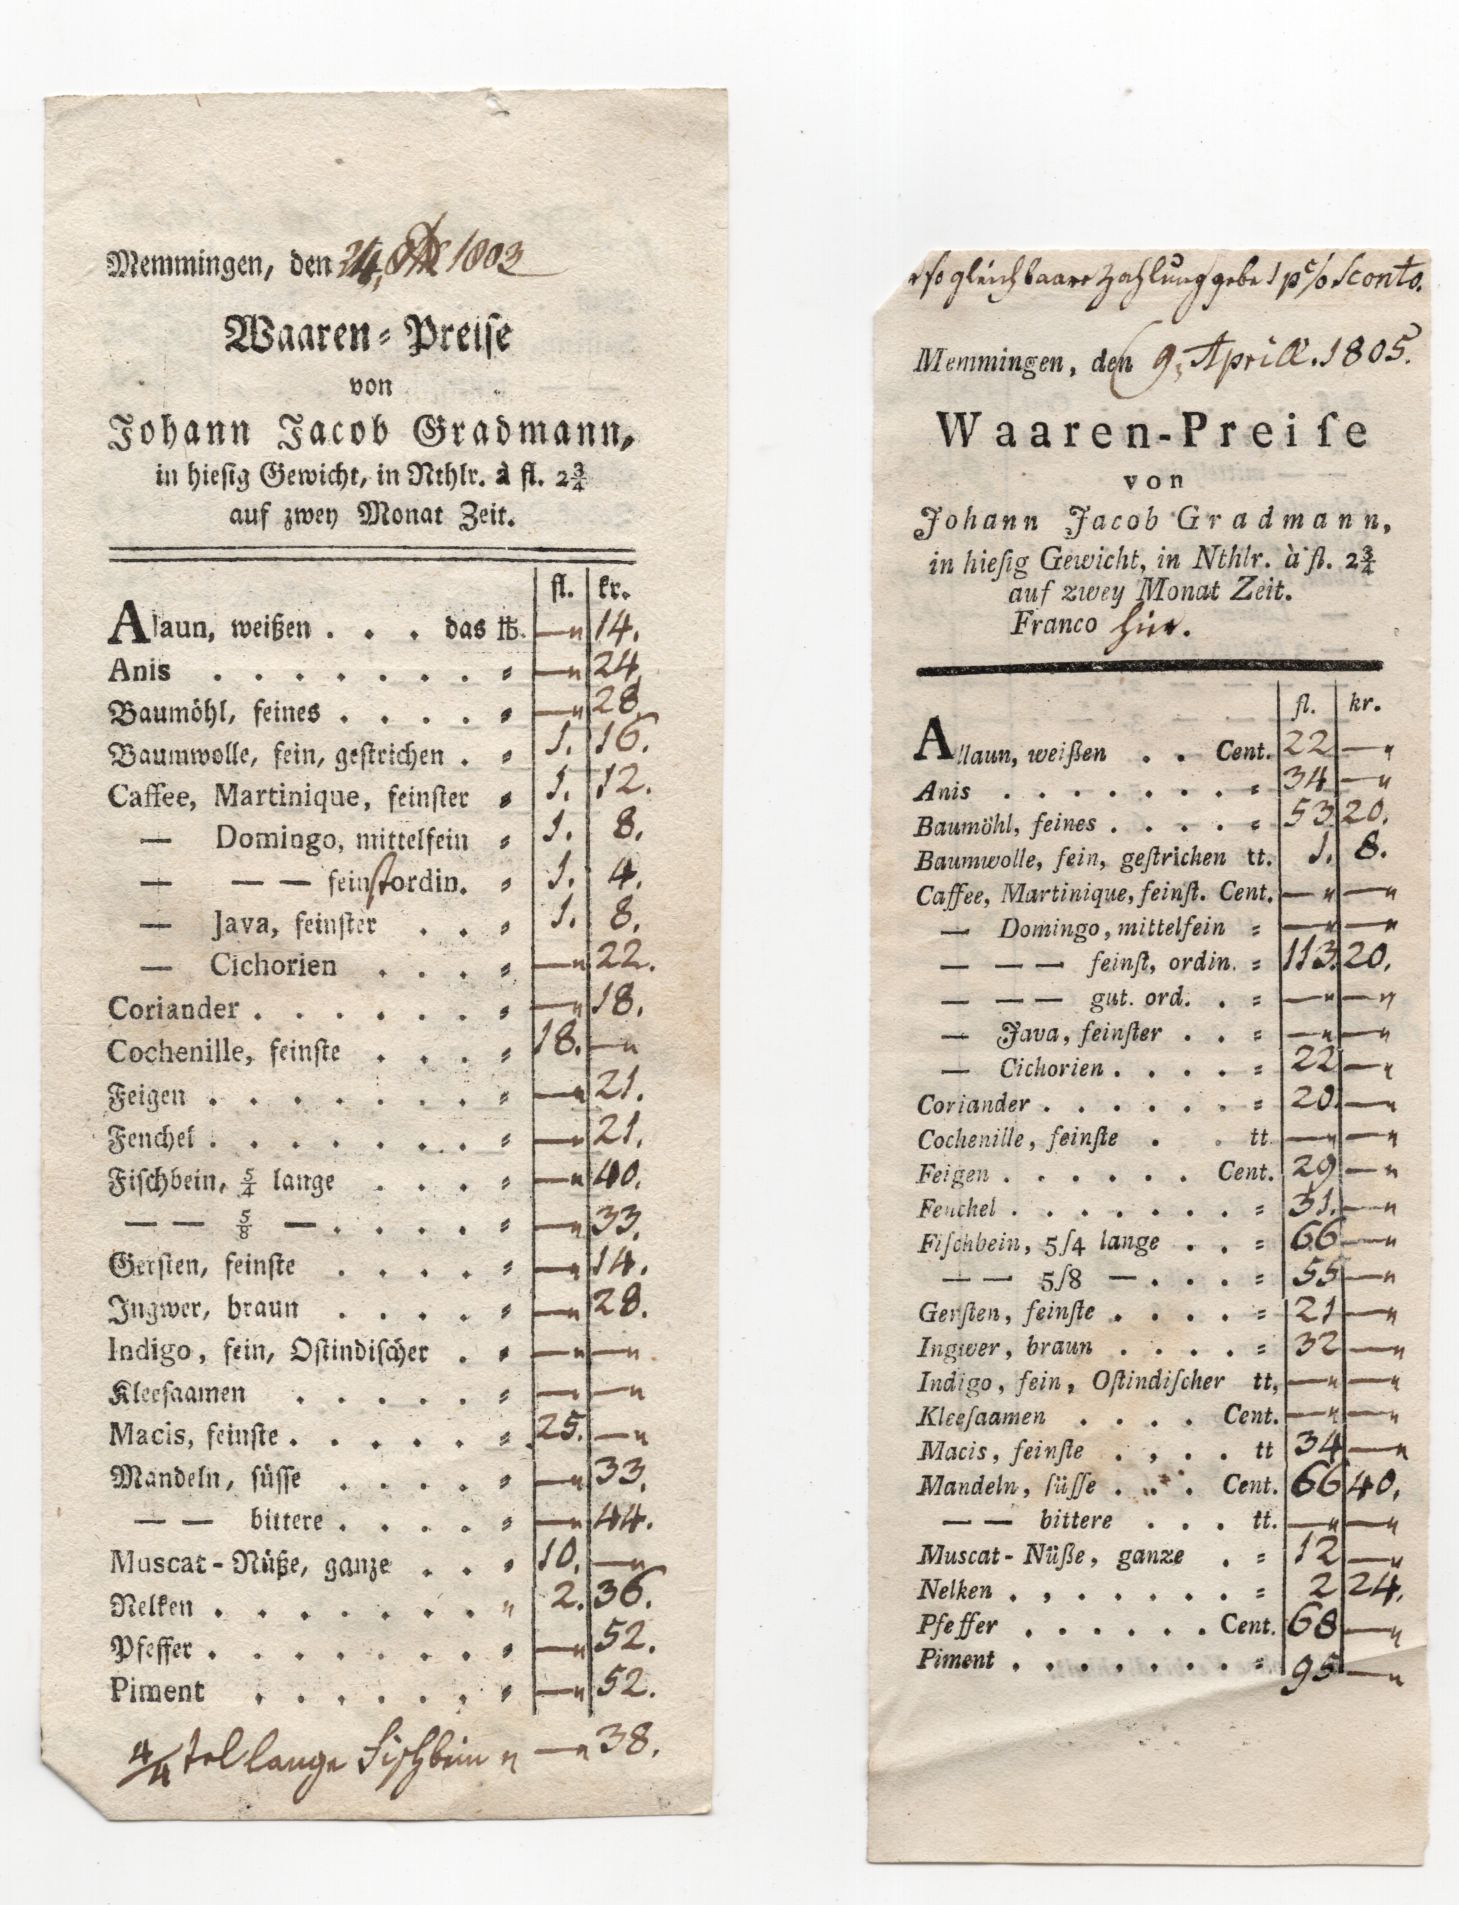 Memmingen, den 24, 1803
Waaren-Preise
von
Johann Jacob Gradmann,
in hiesig Gewicht, in Nthlr. à fl. 2¾
auf zwey Monat Zeit.
fl. kr.
Alaun, weißen . . . das ℔. — " 14.
Anis . . . . . . . . " — " 24.
Baumöhl, feines . . . . " — " 28.
Baumwolle, fein, gestrichen . " 1. 16.
Caffee, Martinique, feinster " 1. 12.
— Domingo, mittelfein " 1. 8.
— — — feinst ordin. " 1. 4.
— Java, feinster . . " 1. 8.
— Cichorien . . . " — " 22.
Coriander . . . . . . " — " 18.
Cochenille, feinste . . . " 18. — "
Feigen . . . . . . . " — " 21.
Fenchel . . . . . . . " — " 21.
Fischbein, 5/4 lange . . . " — " 40.
— — 5/8 — . . . . " — " 33.
Gersten, feinste . . . . " — " 14.
Ingwer, braun . . . . " — " 28.
Indigo, fein, Ostindischer . " — " — "
Kleesaamen . . . . . " — " — "
Macis, feinste . . . . . " 25. — "
Mandeln, süsse . . . . " — " 33.
— — bittere . . . . " — " 44.
Muscat-Nüße, ganze . . " 10. — "
Nelken . . . . . . . " 2. 36.
Pfeffer . . . . . . . " — " 52.
Piment . . . . . . " — " 52.
4/4 tel lange Fischbein " — " 38.
so gleich baare Zahlung gebe 1 pc/o Sconto.
Memmingen, den 9, Aprill. 1805.
Waaren-Preise
von
Johann Jacob Gradmann,
in hiesig Gewicht, in Nthlr. à fl. 2¾
auf zwey Monat Zeit.
Franco hier.
fl. kr.
Allaun, weißen . . Cent. 22 — "
Anis . . . . . . . = 34 — "
Baumöhl, feines . . . . = 53 20.
Baumwolle, fein, gestrichen tt. 1. 8.
Caffee, Martinique, feinst. Cent. — " — "
— Domingo, mittelfein = — " — "
— — — feinst, ordin. = 113. 20.
— — — gut. ord. . = — " — "
— Java, feinster . . = — " — "
— Cichorien . . . . = 22 — "
Coriander . . . . . . = 20. — "
Cochenille, feinste . . tt — " — "
Feigen . . . . . . Cent. 29 — "
Fenchel . . . . . . . = 31. — "
Fischbein, 5/4 lange . . = 66 — "
— — 5/8 — . . . = 55 — "
Gersten, feinste . . . . = 21 — "
Ingwer, braun . . . . = 32 — "
Indigo, fein, Ostindischer tt, — " — "
Kleesaamen . . . . Cent. — " — "
Macis, feinste . . . . tt 34 — "
Mandeln, süsse . . . Cent. 66 40.
— — bittere . . . tt. — " — "
Muscat-Nüße, ganze . = 12 — "
Nelken . . . . . . . = 2 24.
Pfeffer . . . . . . Cent. 68 — "
Piment . . . . . . . = 95 — "